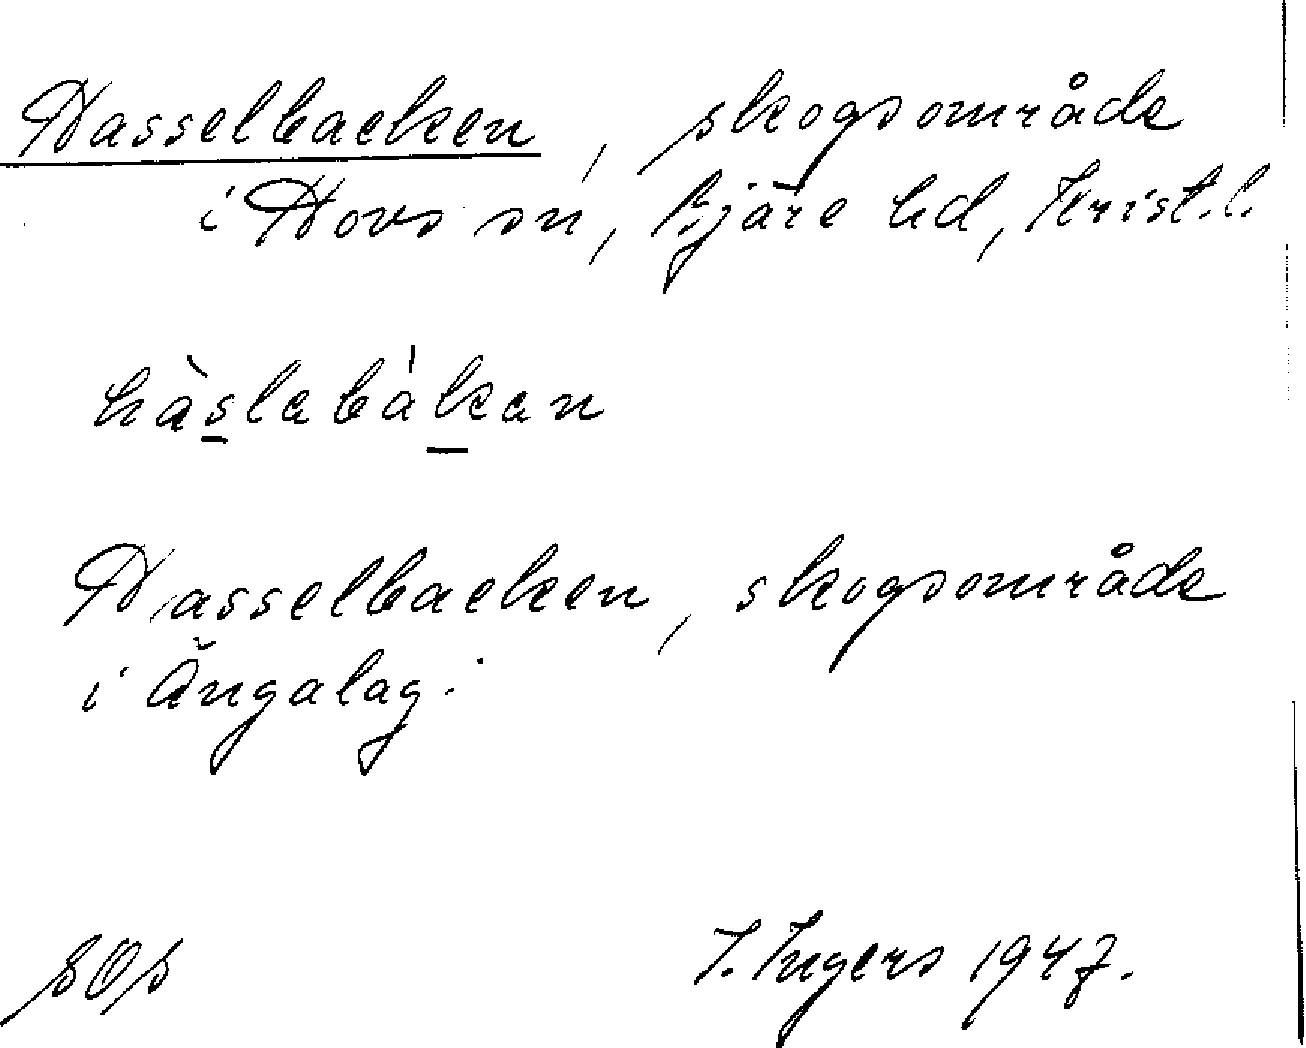 Hasselbacken, skogsområde
i Hovs sn, Bjäre hd, Krist. l.
hàslabákan
Hasselbacken, skogsområde
i Ängalag.
SOS I. Ingers 1947.